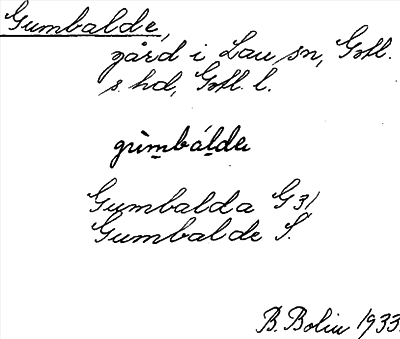 Gumbalde,
gård i Lau sn, Gotl.
s. hd, Gotl. l.
gùmbáldȧ
Gumbalda G 31
Gumbalde S.
B. Bolin 1933.